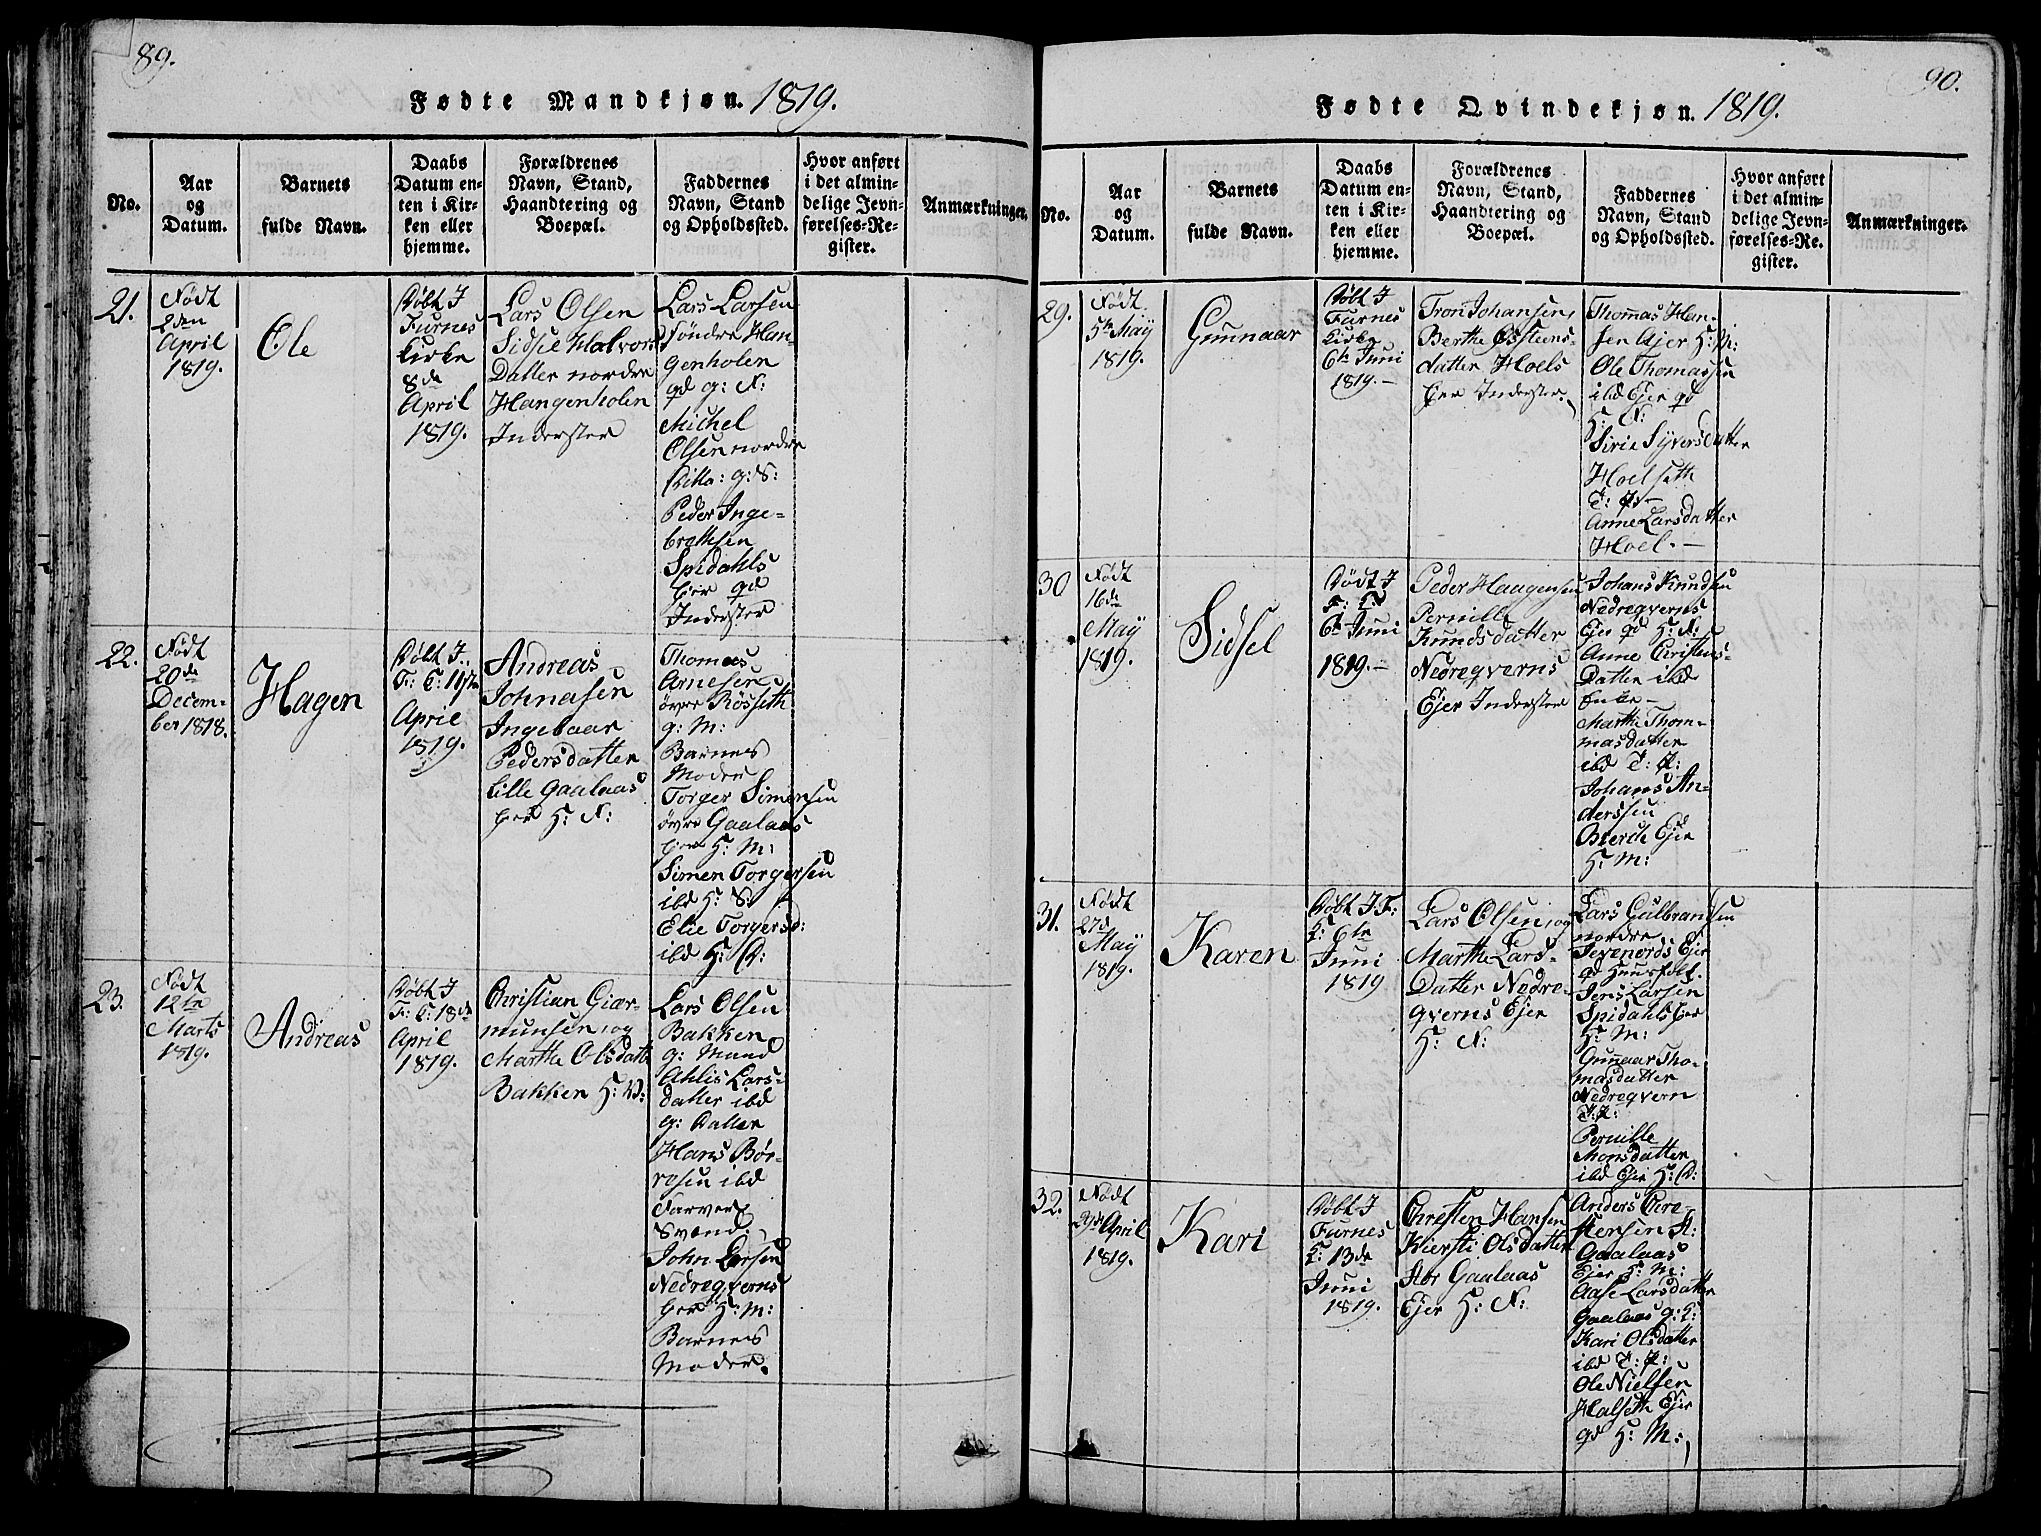 89.
Fødte Mandkjøn. 1819.
No.
Aar
og
Datum.
Barnets
fulde Navn.
Daabs
Datum en-
ten i Kir-
ken eller
hjemme.
Forældrenes
Navn, Stand,
Haandtering og
Boepæl.
Faddernes
Navn, Stand
og Opholdssted.
Hvor anført
i det almin-
delige Jevn-
førelses-Re-
gister.
Anmærkninger.
21.
Født
2den
April
1819.
Ole
Døbt I
Furnes
Kirke
8de
April
1819.
Lars Olsen
Sidsie Halvors
Datter nordre
Hangenholen
Inderster
Lars Larsen
Søndre Han-
genholen
gd g: N:
Michel
Olsen nordre
g: S:
Peder Inge-
brethsen
Spidahls
Ejer gd
Inderster
22.
Født
20de
Decem-
ber 1818.
Hagen
Døbt I
F: K: 11te
April
1819.
Andreas
Johnasen
Ingebaar
Pedersdatter
Lille Gaalaas
Ejer H: N:
Thomas
Arnesen
øvre Rösseth
g: M:
Barnes
Moder
Torger Simensen
øvre Gaalaas
Ejer H: M:
Simen Torgersen
ibd H: S:
Elie Torgersd:
ibd H: D:
23.
Født
12te
Marts
1819.
Andreas
Døbt I
F: K: 18de
April
1819.
Christian Giær-
munsen, og
Marthe Olsdatte
Bakken H: V:
Lars Olsen
Bakken
g: Mand
Ahlis Lars-
datter ibd
g: Datter
Hans Bør-
resen ibd
Farver
Svend
John Larsen
Nedreqverns
Ejer H: M:
Barnes
Moder.
90.
Fødte Qvindekjøn. 1819.
No.
Aar
og
Datum.
Barnets
fulde Navn.
Daabs
Datum en-
ten i Kir-
ken eller
hjemme.
Forældrenes
Navn, Stand,
Haandtering og
Boepæl.
Faddernes
Navn, Stand
og Opholdssted.
Hvor anført
i det almin-
delige Jevn-
førelses-Re-
gister.
Anmærkninger.
29.
Født
5te Maÿ
1819.
Gunnaar
Døbt I
Furnes
Kirke
6te Juni
1819.-
Tron Johansen,
Berthe Østens-
datter Hoels
Ejer Inderster.
Thomas Han-
sen Ejer H:
Ole Thomassen
ibd Ejer gd
H: N:
Sirie Syversdatter
Hoelseth
T: P:-
Anne Larsdatter
Hoel.-
30
Født
16de
Maÿ
1819.
Sidsel
Døbt I
F: K:
6te Juni
1819.-
Peder Haagensen
Pernille
Knudsdatter
Nedreqverns
Ejer Inderster
Johans Knudsen
Nedreqverns
Ejer gd H: N:
Anne Christens-
Datter ibd
Enke-
Marthe Thom-
masdatter
ibd T: P:
Johans An-
derssen
Bierche Ejer
H: M:
31.
Født
27d
Maÿ
1819.
Karen
Døbt I F:
K: 6te
Juni
1819
Lars Olsen, og
Marthe Lars-
Datter Nedre-
qverns Ejer
H: N:
Lars Gulbrandsen
nordre
Jevenords Ejer
gd Huusfolk.
Jens Larsen
Spidahls Ejer
H: M:
Gunnaar Tho-
masdatter
Nedreqvern
T: P:
Pernille
Monsdatter
ibd Ejer H: D:
32.
Født
April
1819.
Kari
Døbt I
Furnes
K: 13de
Juni
1819.
Christen Hansen
Kiersti Olsdatter
Stor Gaalaas
Ejer H: N:
Anders Chre-
stensen St:
Gaalaas
Ejer H: M:
Aase Larsdatter
Gaalaas g: K:
Kari Olsdatter
ibd T: P:
Ole Nielsen
Halseth Ejer
gd H: M: